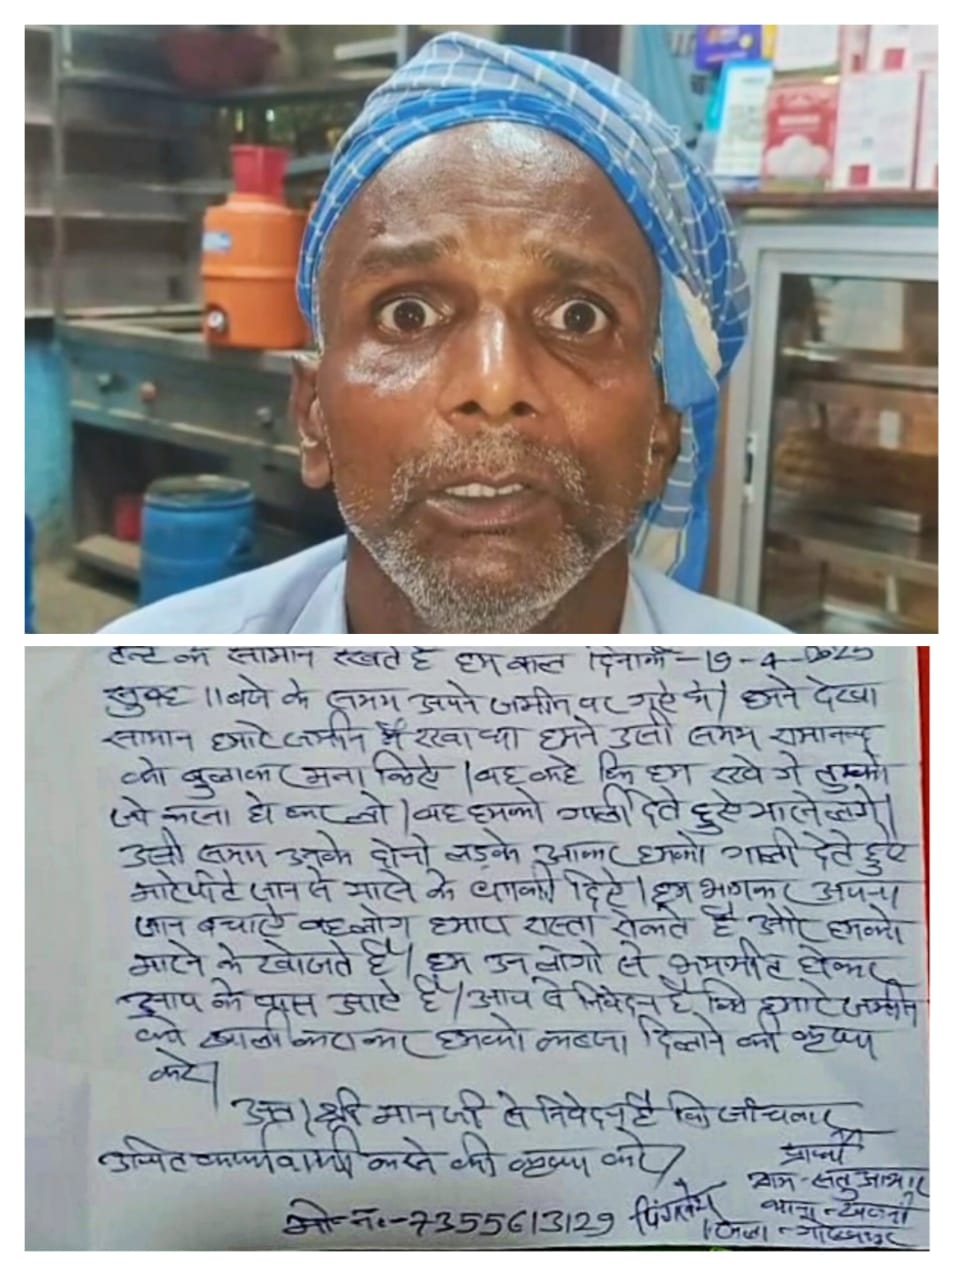 टेन्ट का सामान रखते है हम कल दिनांक-19-4-2025
सुबह 11 बजे के समय अपने जमीन पर गए थे। हमने देखा
सामान हमारे जमीन में रखा था हमने उसी समय रामानन्द
को बुलाकर मना किए। वह कहे कि हम रखे गे तुमको
जो करना हो कर लो। वह हमको गाली देते हुए मारने लगे।
उसी समय उनके दोनो लड़के आकर हमको गाली देते हुए
मारेपीटे जान से मारने के धमकी दिए। हम भागकर अपना
जान बचाए वह लोग हमारा रास्ता रोकते है और हमको
मारने के खोजते है। हम उन लोगो से भयभीत होकर
आप के पास आए है। आप से निवेदन है कि हमारे जमीन
को खाली कराकर हमको कब्जा दिलाने की कृपा
करे।
अतः श्री मान जी से निवेदन है कि जाँचकर
उचित कार्यवाही करने की कृपा करे।
प्रार्थी
ग्राम-सतुआभार
थाना-खजनी
जिला-गोरखपुर
मो-नं:-7355613129